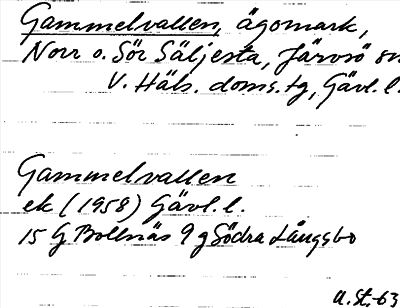 Gammelvallen, ägomark,
Norr o. Sör Säljesta, Järvsö sn
V. Häls. doms. tg, Gävl. l.
Gammelvallen
ek (1958) Gävl. l.
15 G Bollnäs 9 g Södra Långsbo
U. St. -63